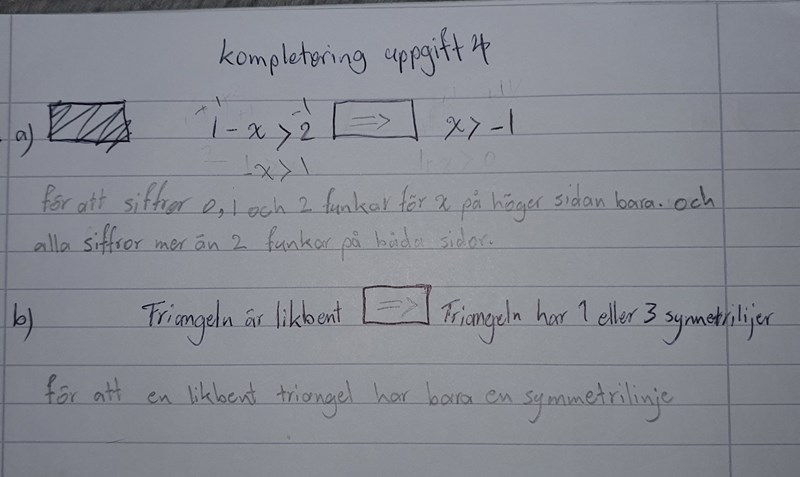 kompletering uppgift 4
a) 1 - x > 2 => x > -1
-x > 1
för att siffror 0, 1 och 2 funkar för x på höger sidan bara. och
alla siffror mer än 2 funkar på båda sidor.
b) Triangeln är likbent => Triangeln har 1 eller 3 symmetrilijer
för att en likbent triangel har bara en symmetrilinje